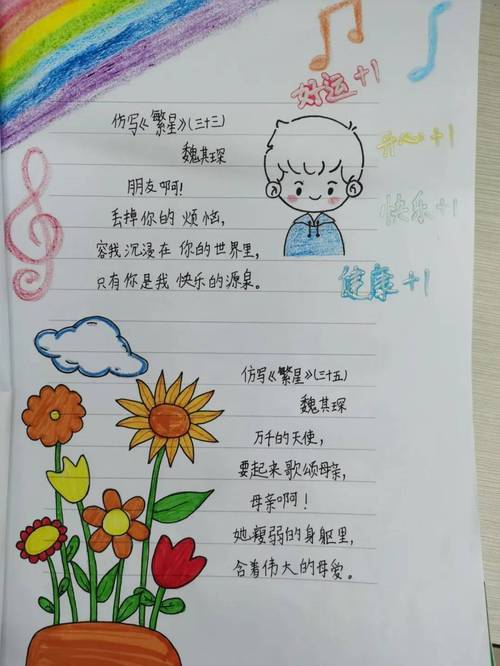 好运+1
仿写《繁星》(三十三)
魏其琛
开心+1
朋友啊!
丢掉你的烦恼,
快乐+1
容我沉浸在你的世界里,
只有你是我快乐的源泉。
健康+1
仿写《繁星》(三十五)
魏其琛
万千的天使,
要起来歌颂母亲,
母亲啊!
她瘦弱的身躯里,
含着伟大的母爱。